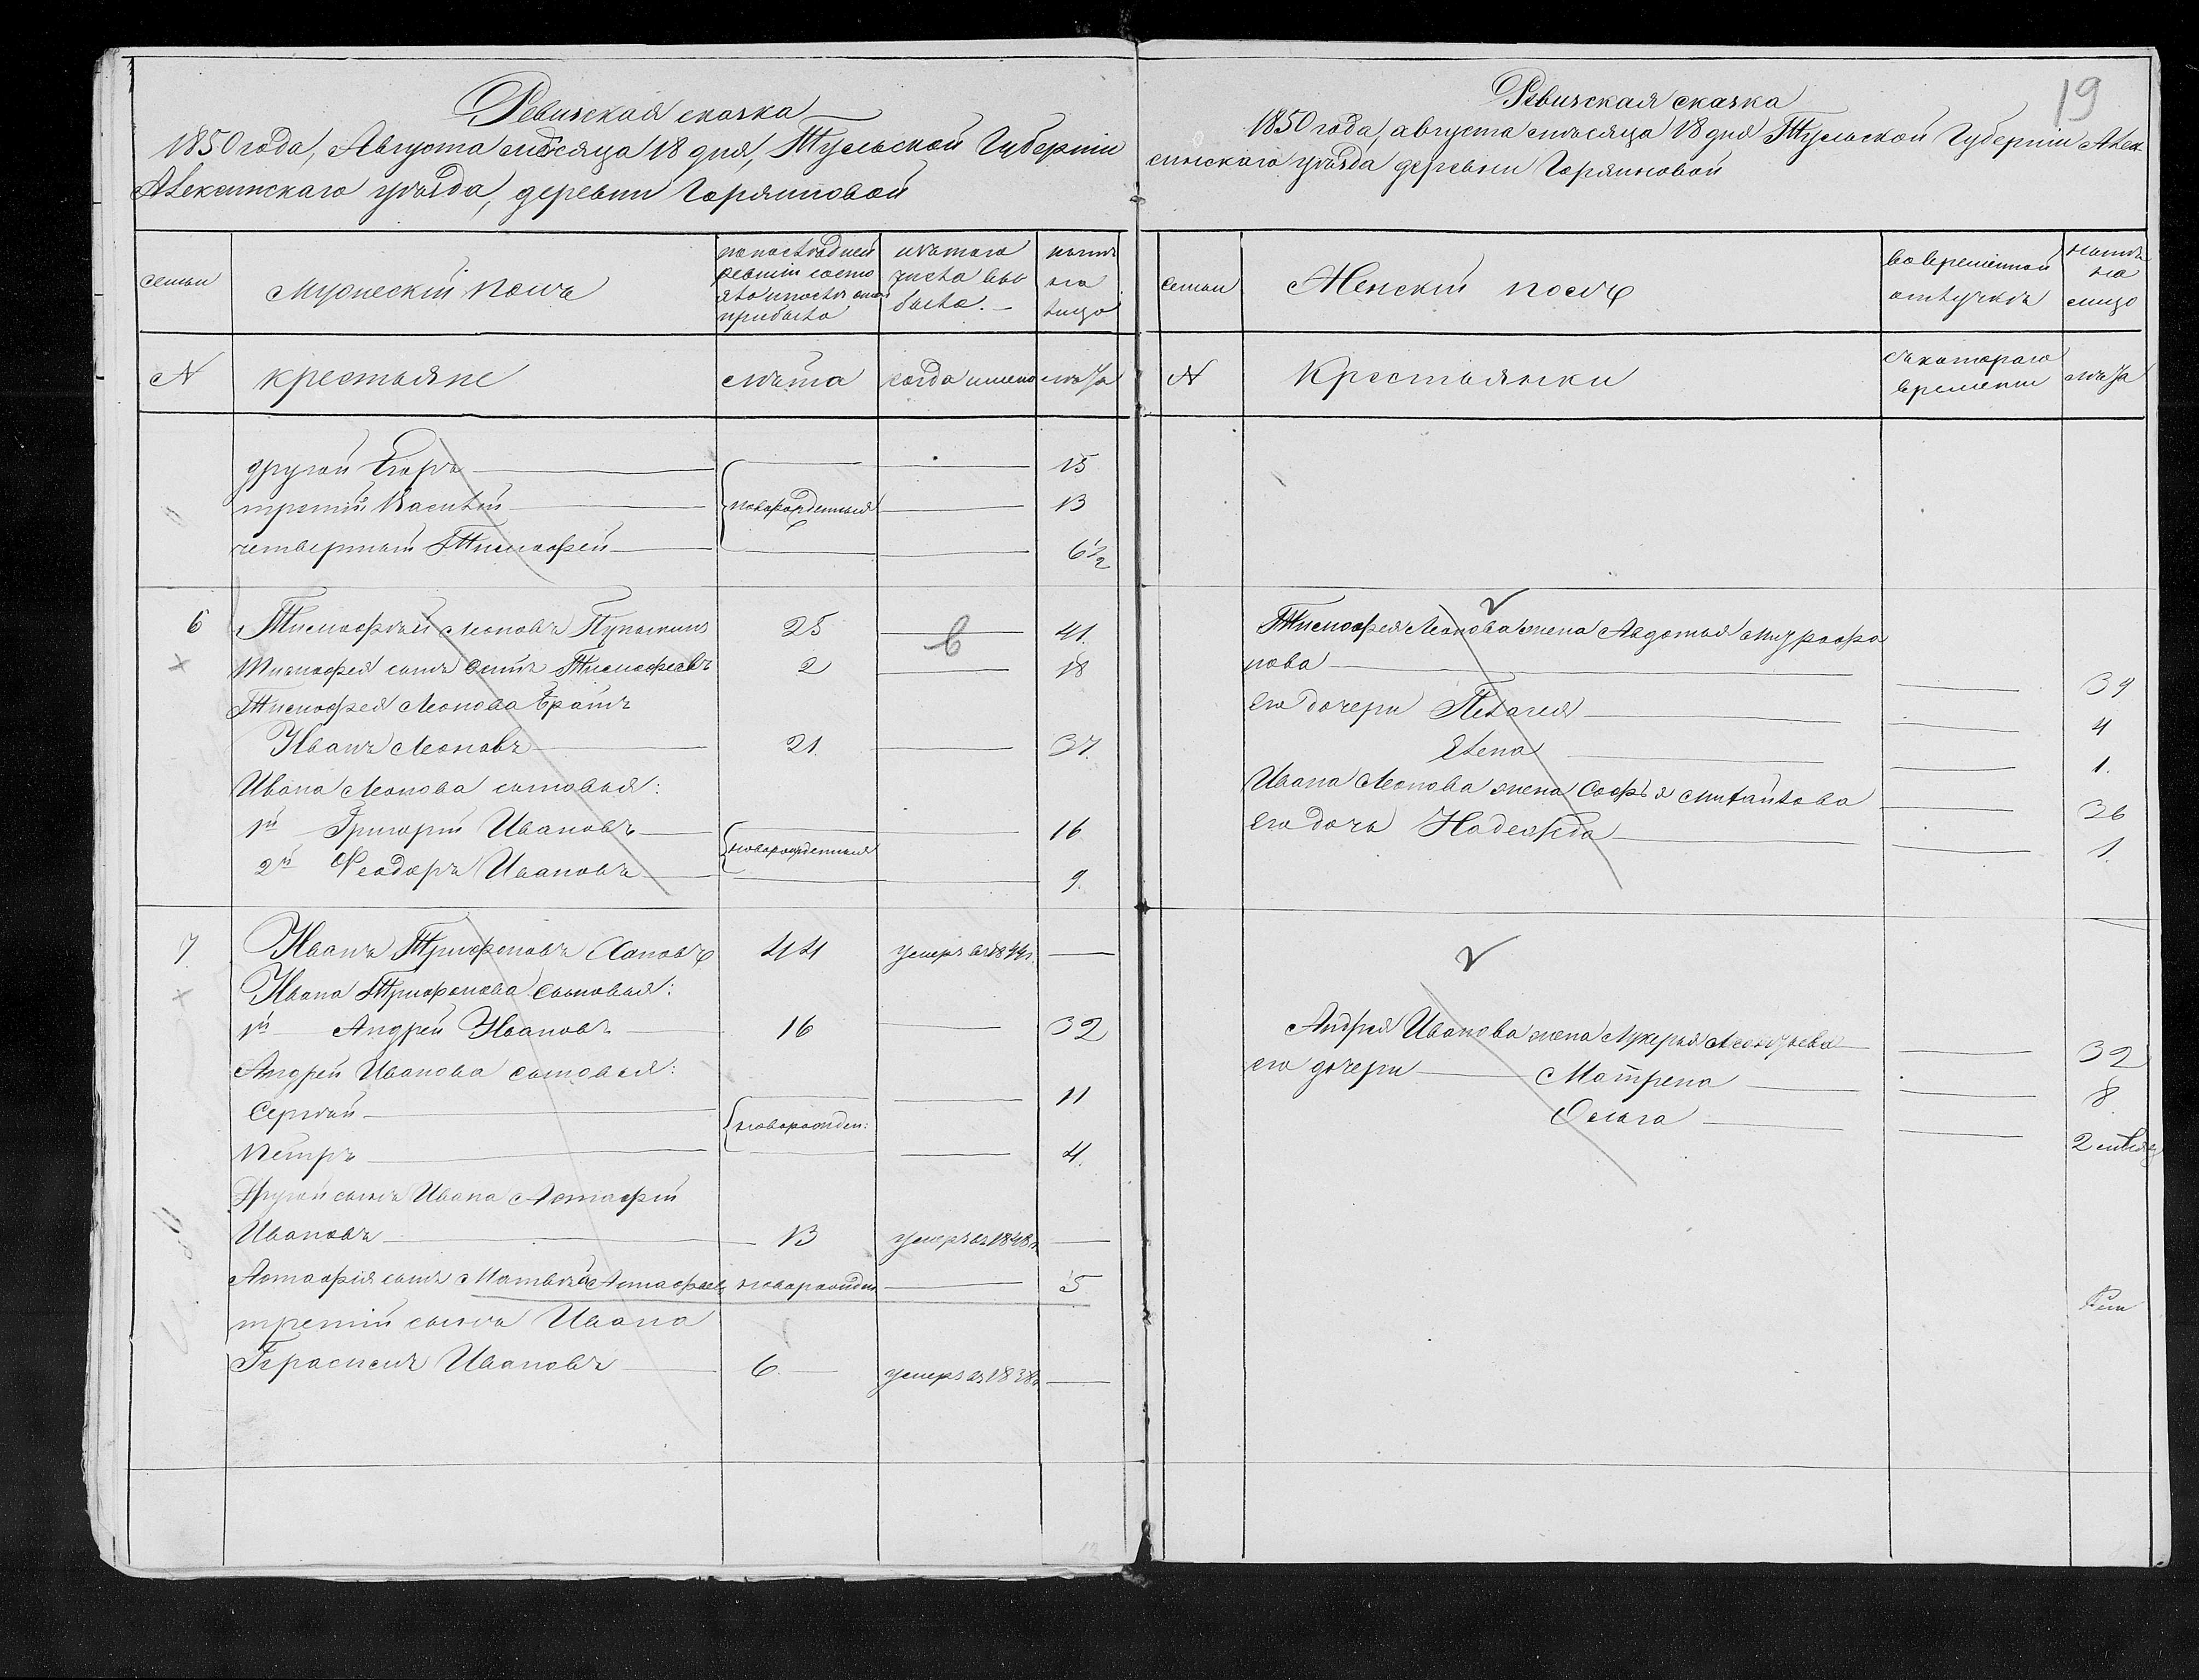 Ревизская сказка
1850 года, Августа месяца 18 дня, Тульской Губернии
Алексинскаго уѣзда, деревни Горяиновой
семьи
Мужескій полъ
по последней
ревизіи состо
яло и после оной
прибыло
изъ того
числа вы
было.
ныне
на
лицо
N
крестьяне
лѣта
когда имено
лѣта
другой Егоръ
15
третій Василій
новорожденныя
13
четвертый Тимофей
6½
6
Тимофѣй Леоновъ
25
в
41.
Тимофея сынъ Тимофеевъ
2
18
Тимофея Леонова братъ
Иванъ Леоновъ
21.
37.
Ивана Леонова сыновья:
1й Григорій Ивановъ
16
новорожденныя
2й Феодоръ Ивановъ
9.
7
Иванъ Трифоновъ
44
умеръ въ
Ивана Трифонова сыновья:
1й Андрей Ивановъ
16
32
Андрей Иванова сыновья:
Сергѣй
11
новорожден:
Петръ
4.
Другой сынъ Ивана Астафій
Ивановъ
13
умеръ въ 1848г
Астафія сынъ Матвѣй Астафьевъ
новорожден
5
третій сынъ Ивана
Герасимъ Ивановъ
6
умеръ въ 1838г
19
Ревизская сказка
1850 года, августа месяца 18 дня Тульской Губерніи Алек
синскаго уѣзда деревни Горяиновой
семьи
Женскій полъ
во временной
отлучкѣ
ныне
на
лицо
N
Крестьянки
съ котораго
времени
лѣта
Тимофея Леонова жена Авдотья Митрофа
нова
39
его дочери Пелагея
4
Елена
1.
Ивана Леонова жена Софья Михайлова
36
его дочь Надежда
1.
Андрея Иванова жена Лукерья
32
его дочери Матрена
8
Ольга
2 месяца